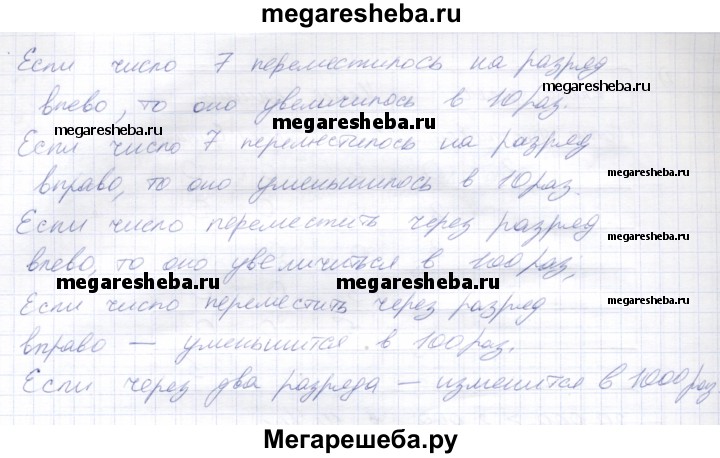 megaresheba.ru
Если число 7 переместилось на разряд
megaresheba.ru
влево, то оно увеличилось в 10 раз.
megaresheba.ru
megaresheba.ru
Если число 7 переместилось на разряд
megaresheba.ru
вправо, то оно уменьшилось в 10 раз.
Если число переместить через разряд
megaresheba.ru
влево, то оно увеличиться в 100 раз,
megaresheba.ru
megaresheba.ru
Если число переместить через разряд
megaresheba.ru
вправо — уменьшится в 100 раз.
Если через два разряда — изменится в 1000 раз.
Мегарешеба.ру